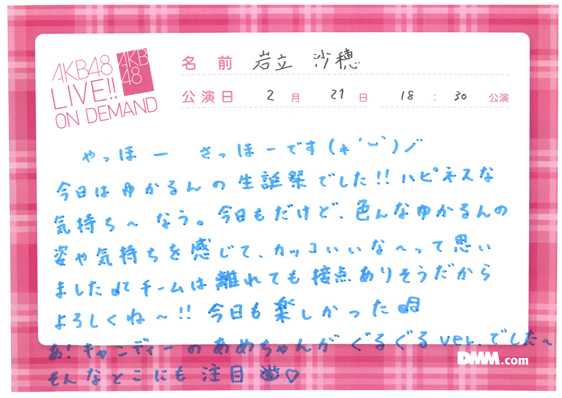 AKB48
LIVE!!
ON DEMAND
AKB
48
名前 岩立 沙穂
公演日 2月 21日 18:30 公演
やっほー さっほーです(*'ω'`)ノ
今日はゆかるんの生誕祭でした!!ハピネスな
気持ち〜なう。今日もだけど、色んなゆかるんの
姿や気持ちを感じて、カッコいいな〜って思い
ました♪てチームは離れても接点ありそうだから
よろしくね〜!!今日も楽しかった
あ!キャンディーのあめちゃんがぐるぐるver.でした〜
そんなとこにも注目♡
DMM.com